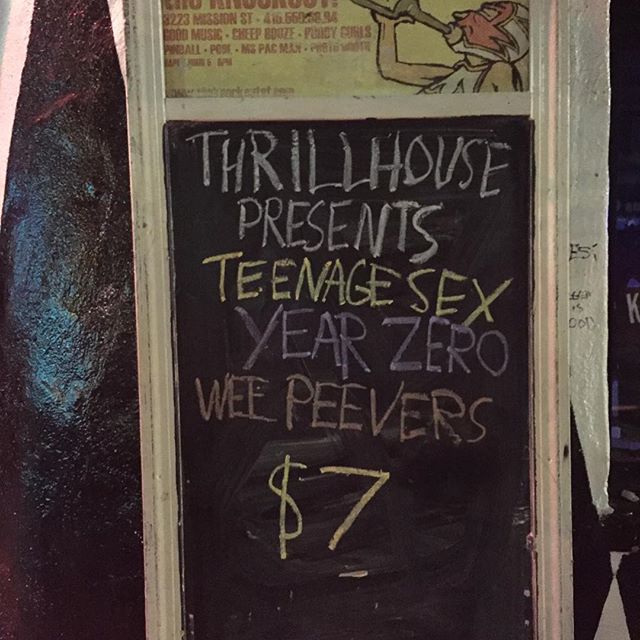 KNOCKOUT!
3223 MISSION ST • 415.550.6994
GOOD MUSIC • CHEEP BOOZE • PURCY GURLS
PINBALL • POOL • MS PAC MAN • PHOTO BOOTH
THRILLHOUSE
PRESENTS
TEENAGE SEX
YEAR ZERO
WEE PEEVERS
$7